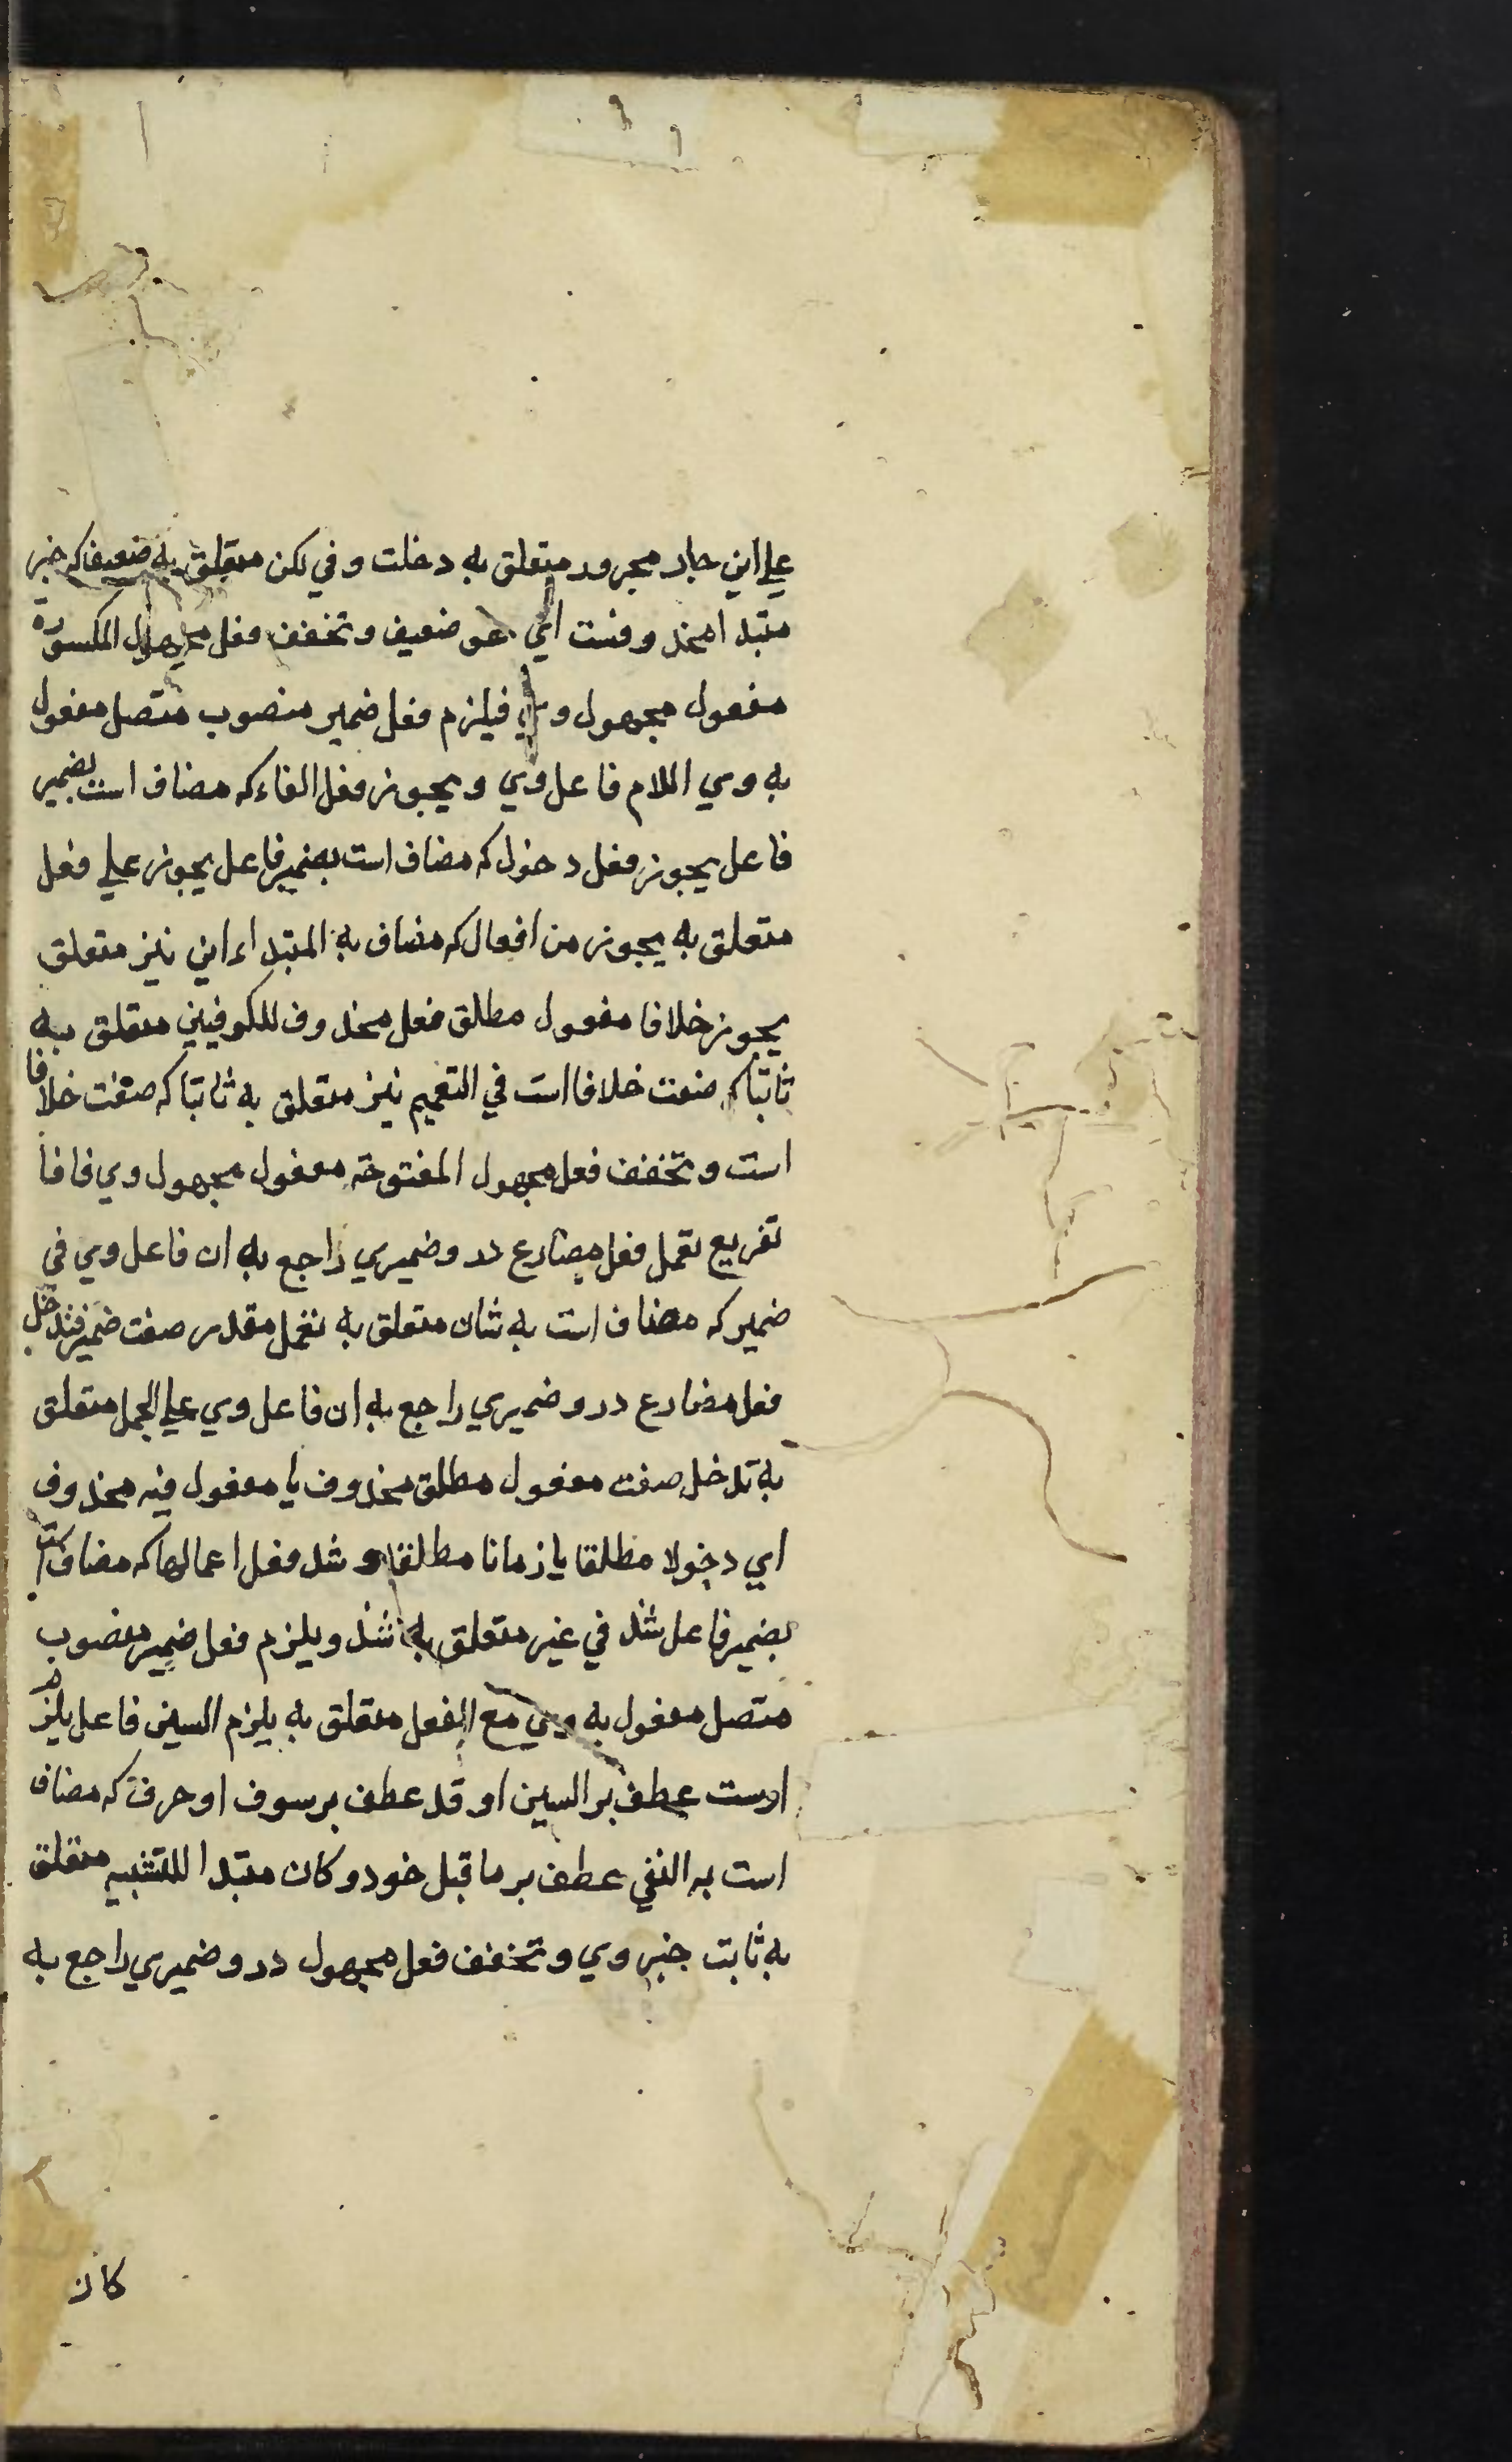 علي اين جار مجرور متعلق به دخلت وفي لكن متعلق به ضعيفا كه خبر
متبدا محذوفست اي هو ضعيف وتخفف فعل مجهول المكسورة
مفعول مجهول وي فيلزم فعل ضمير منصوب متصل مفعول
به وي اللام فاعل وي ويجوز فعل الغاء كه مضاف است بضمير
فاعل يجوز فعل دخول كه مضاف است بضمير فاعل يجوز علي فعل
متعلق به يجوز من افعال كه مضاف به المتبداء اين نيز متعلق
يجوز خلافا مفعول مطلق فعل محذوف للكوفيين متعلق به
ثابتا كه صفت خلافا است في التعميم نيز متعلق به ثابتا كه صفت خلافا
است وتخفف فعل مجهول المفتوحة مفعول مجهول وي فا فا
تفريع تعمل فعل مضارع درو ضميري راجع به ان فاعل وي في
ضمير كه مضاف است به شان متعلق به تعمل مقدر صفت ضمير فتدخل
فعل مضارع درو ضميري راجع به ان فاعل وي علي الجمل متعلق
به تدخل صفت مفعول مطلق محذوف يا مفعول فيه محذوف
اي دخولا مطلقا يا زمانا مطلقا و شذ فعل اعمالها كه مضاف است
بضمير فاعل شذ في غير متعلق به شذ ويلزم فعل ضمير منصوب
متصل مفعول به وي مع الفعل متعلق به يلزم السين فاعل يلزم
اوست عطف بر السين او قد عطف بر سوف او حرف كه مضاف
است به النفي عطف بر ما قبل خود و كان متبدا للتشبيه متعلق
به ثابت خبر وي وتخفف فعل مجهول درو ضميري راجع به
كان